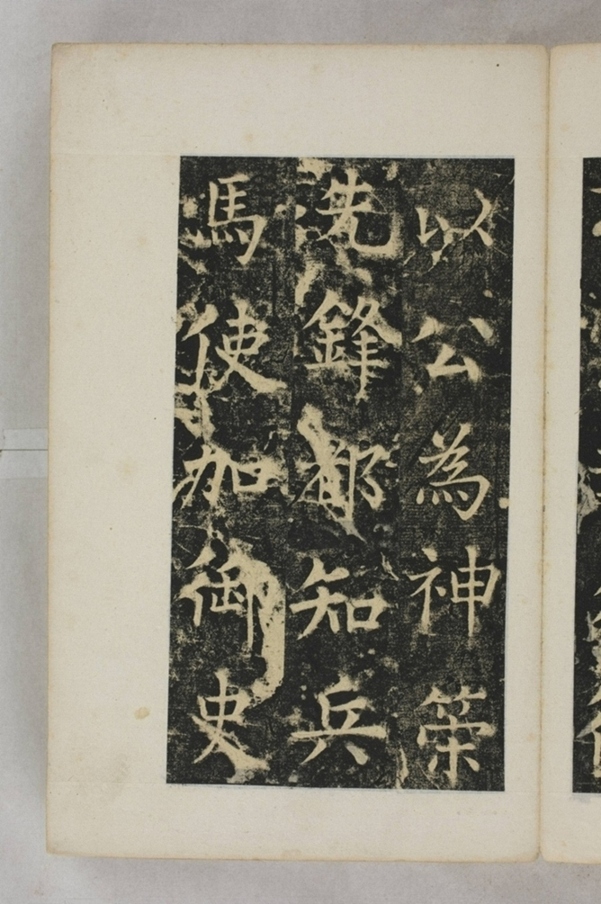 以公為神策
先鋒都知兵
馬使加御史